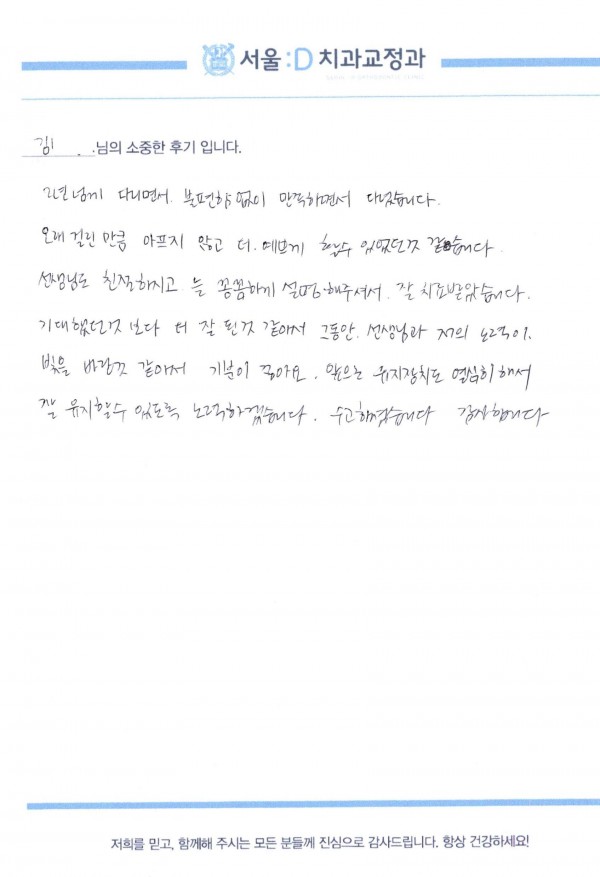 서울:D 치과교정과
김 님의 소중한 후기 입니다.
2년 넘게 다니면서. 불편함 없이 만족하면서 다녔습니다.
오래 걸린 만큼 아프지 않고 더. 예쁘게 할수 있었던것 같습니다.
선생님도 친절하시고 늘 꼼꼼하게 설명해주셔서. 잘 치료받았습니다.
기대했던것 보다 더 잘 된것 같아서 그동안. 선생님과 저의 노력이.
빛을 바란것 같아서 기분이 좋아요. 앞으로 유지장치도 열심히해서
잘 유지할수 있도록 노력하겠습니다. 수고하셨습니다 감사합니다
저희를 믿고, 함께해 주시는 모든 분들께 진심으로 감사드립니다. 항상 건강하세요!